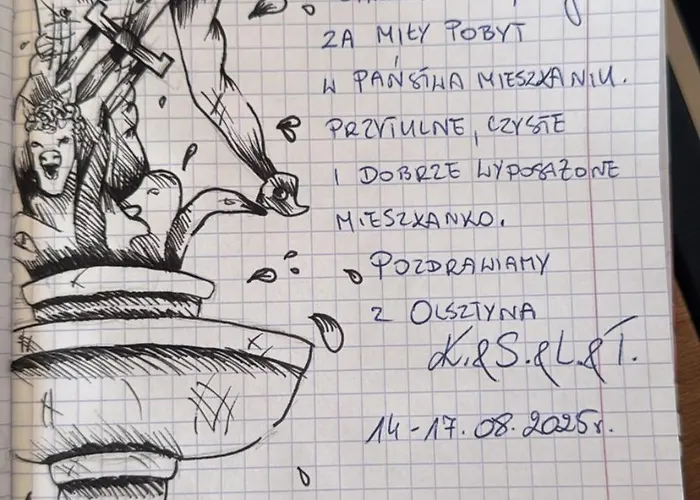 ZA MIŁY POBYT
W PAŃSTWA MIESZKANIU.
PRZYTULNE, CZYSTE
I DOBRZE WYPOSAŻONE
MIESZKANKO.
POZDRAWIAMY
Z OLSZTYNA
K.&S.&L.&T.
14-17.08.2025r.